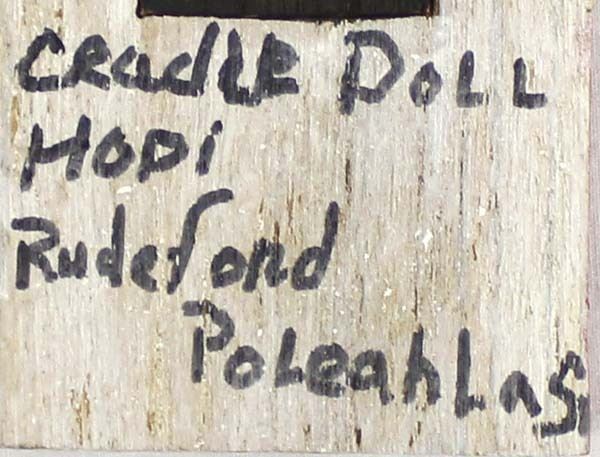 Cradle Doll
Hopi
Rudeford
Poleahla